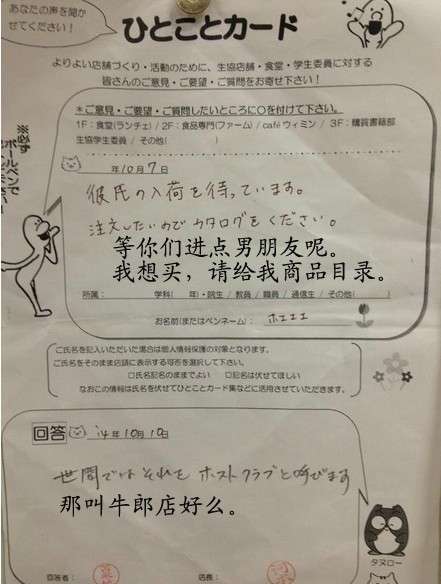 あなたの声を聞か
せてください！
ひとことカード
よりよい店舗づくり・活動のために、生協店舗・食堂・学生委員に対する
皆さんのご意見・ご要望・ご質問をお寄せ下さい！
＊ご意見・ご要望・ご質問したいところに○を付けて下さい。
1F：食堂(ランチェ) / 2F：食品専門(ファーム) / caféウィミン / 3F：購買書籍部
生協学生委員 / その他( )
※必ず
ボールペンで
年10月7日
彼氏の入荷を待っています。
注文したいのでカタログをください。
等你们进点男朋友呢。
我想买，请给我商品目录。
所属： 学科( 年)・院生 / 教員 / 職員 / 通信生 / その他( )
お名前(またはペンネーム)： ホエエエ
ご氏名を記入いただいた場合は個人情報保護の対象となります。
ご氏名をそのまま店頭に表示する可否を選択して下さい。
□氏名記名のままでよい □記名は伏せてほしい
なおこの情報は氏名を伏せてひとことカード集などに活用させていただきます。
回答 '14年10月10日
世間ではそれをホストクラブと呼びます
那叫牛郎店好么。
タヌロー
回答者： 店長：